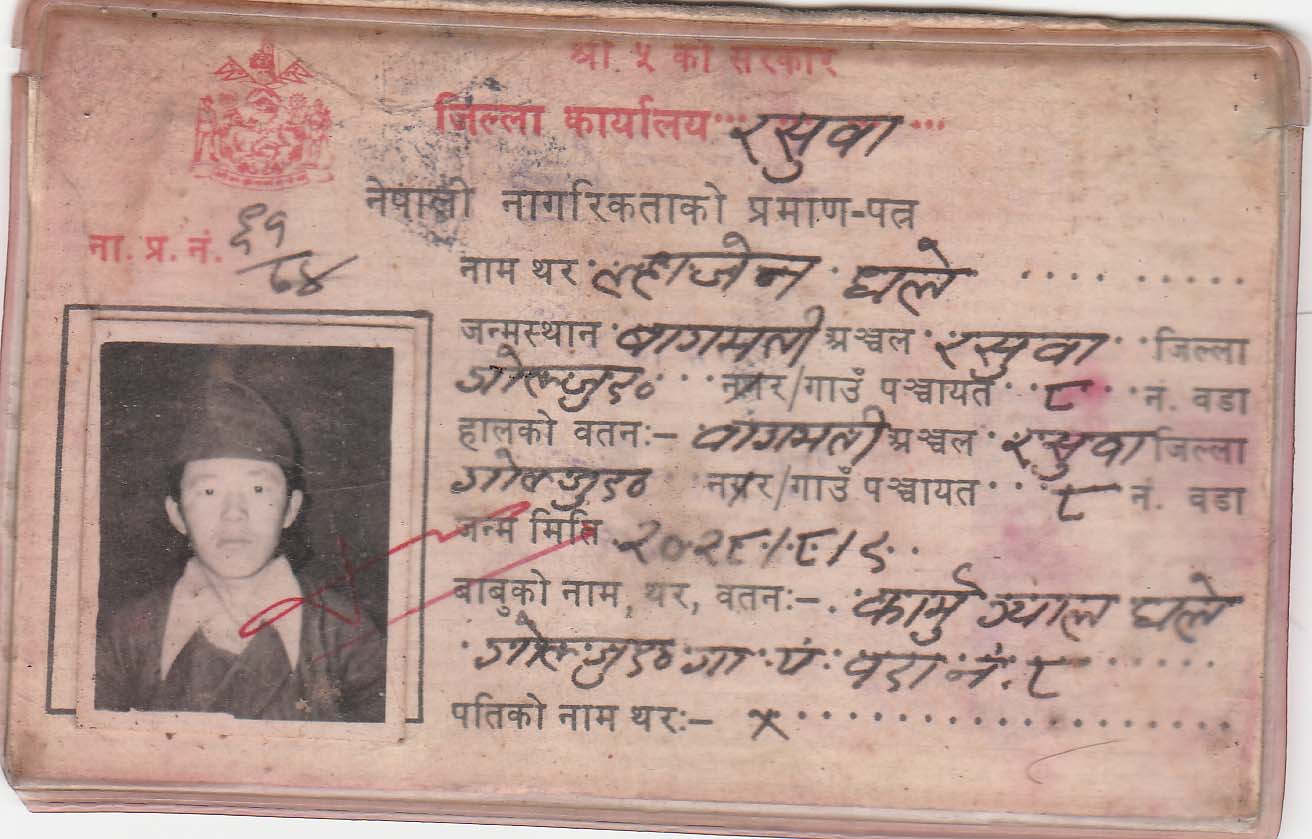 श्री ५ को सरकार
जिल्ला कार्यालय रसुवा
नेपाली नागरिकताको प्रमाण-पत्र
ना. प्र. नं. ६१/८४
नाम थर ल्हाजेन घले
जन्मस्थान बागमती अञ्चल रसुवा जिल्ला
गोल्जुङ नगर/गाउँ पञ्चायत ८ नं. वडा
हालको वतन:- वागमती अञ्चल रसुवा जिल्ला
गोल्जुङ नगर/गाउँ पञ्चायत ८ नं. वडा
जन्म मिति २०२८।८।८
बाबुको नाम, थर, वतन:- कार्मु ग्याल घले
गोल्जुङ गा पं वडा नं. ८
पतिको नाम थर:- x